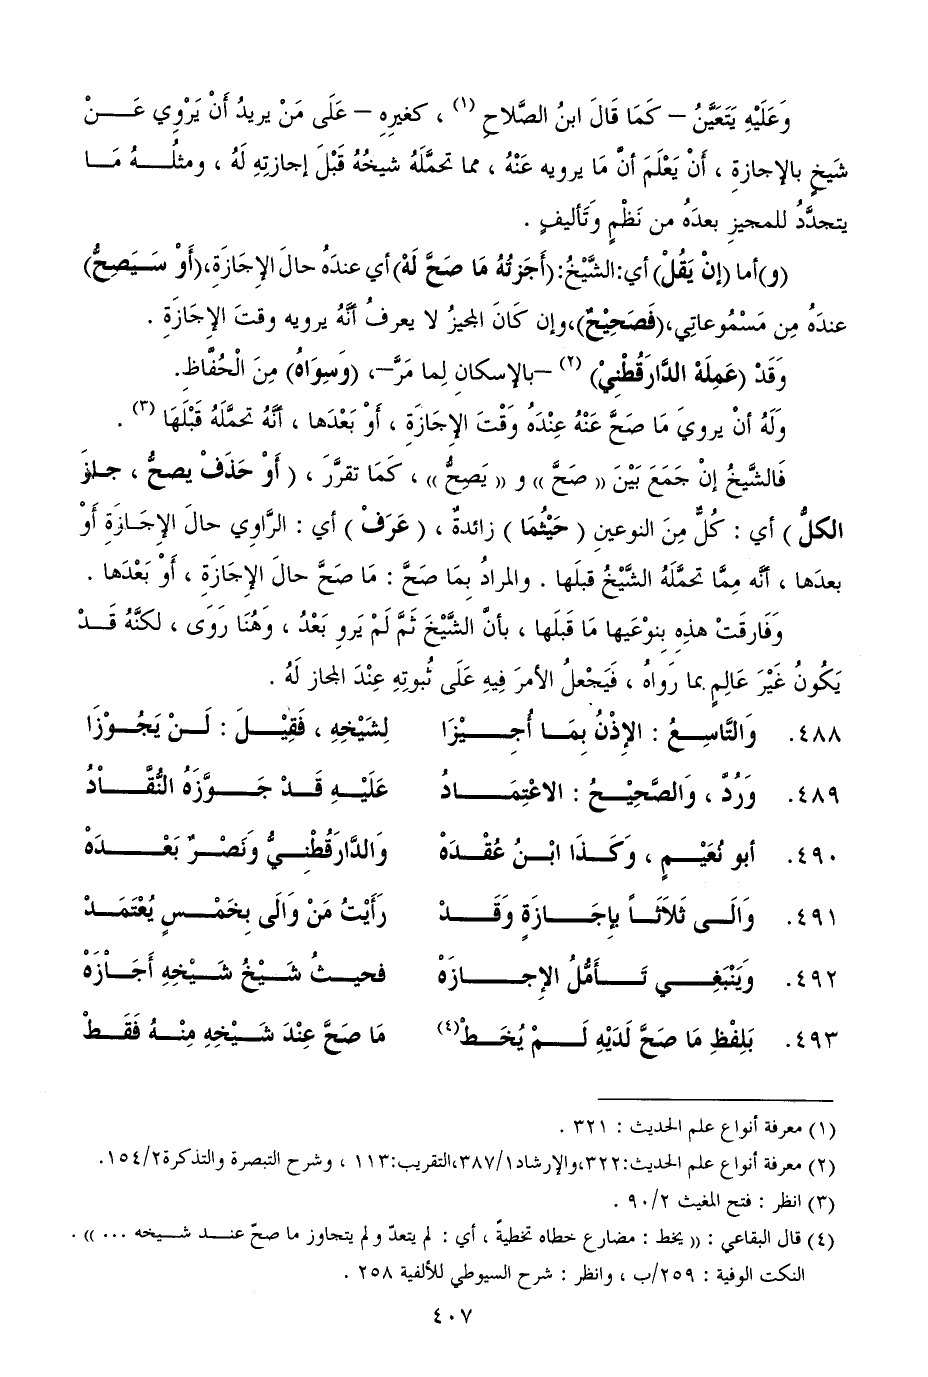 وَعَلَيْهِ يَتَعَيَّنُ – كَمَا قَالَ ابنُ الصَّلاحِ (١) ، كغيرِهِ – عَلَى مَنْ يريدُ أَنْ يَرْوِي عَـنْ
شَيخٍ بالإجازةِ ، أَنْ يَعْلَمَ أنَّ مَا يرويه عَنْهُ ، مما تحمَّلَهُ شيخُهُ قَبْلَ إجازتِهِ لَهُ ، ومثلُـهُ مَـا
يتجدَّدُ للمجيزِ بعدَهُ من نَظْمٍ وَتَأليفٍ .
(و)أما (إنْ يَقُلْ) أي:الشَّيْخُ:(أَجَزتُهُ مَا صَحَّ لَهْ)أي عندَهُ حالَ الإجَازَةِ،(أَوْ سَيَصِحُّ)
عندَهُ مِن مَسْمُوعاتي،(فَصَحِيْحٌ)،وإن كَانَ المجيزُ لا يعرفُ أنَّهُ يرويه وقتَ الإجَازَةِ .
وَقَدْ (عَمِلَهْ الدَّارَقُطْنِيْ) (٢) –بالإسكانِ لِما مَرَّ–، (وَسِوَاهُ) مِنَ الْحُفَّاظِ.
وَلَهُ أنْ يرويَ مَا صَحَّ عَنْهُ عِنْدَهُ وَقْتَ الإجَازَةِ ، أَوْ بَعْدَها ، أنَّهُ تحمَّلَهُ قَبْلَهَا (٣) .
فَالشَّيخُ إنْ جَمَعَ بَيْنَ « صَحَّ » و « يَصِحُّ » ، كَمَا تقرَّرَ ، ( أَوْ حَذَفْ يصحُّ ، جـازَ
الكلُّ ) أي : كُلٌّ مِنَ النوعينِ ( حَيْثُمَا ) زائدةٌ ، ( عَرَفْ ) أي : الرَّاوي حالَ الإجَـازَةِ أَوْ
بعدَها ، أنَّه مِمَّا تحمَّلَهُ الشَّيْخُ قبلَها . والمرادُ بِمَا صَحَّ : مَا صَحَّ حالَ الإجَازَةِ ، أَوْ بَعْدَها .
وَفَارقتْ هذِهِ بِنوْعَيها مَا قبلَها ، بأنَّ الشَّيْخَ ثَمَّ لَمْ يَروِ بَعْدُ ، وَهُنَا رَوَى ، لكنَّهُ قَـدْ
يَكُونُ غَيْرَ عَالِمٍ بما رَواهُ ، فَيَجْعلُ الأمرَ فِيهِ عَلَى ثُبوتِهِ عِنْدَ المجاز لَهُ .
٤٨٨. وَالتَّاسِعُ : الإِذْنُ بِمَا أُجِيْزَا لِشَيْخِهِ ، فَقِيْلَ : لَنْ يَجُوْزَا
٤٨٩. وَرُدَّ ، وَالصَّحِيْحُ : الاعْتِمَادُ عَلَيْهِ قَدْ جَوَّزَهُ النُّقَّادُ
٤٩٠. أبو نُعَيْمٍ ، وَكَذَا ابْنُ عُقْدَهْ وَالدَّارَقُطْنِيُّ وَنَصْرٌ بَعْدَهْ
٤٩١. وَالَى ثَلَاثَاً بإجَازَةٍ وَقَدْ رَأَيْتُ مَنْ وَالَى بِخَمْسٍ يُعْتَمَدْ
٤٩٢. وَيَنْبَغِي تَأَمُّلُ الإجازَهْ فحيثُ شَيْخُ شَيْخِهِ أَجَازَهْ
٤٩٣. بَلِفْظِ مَا صَحَّ لَدَيْهِ لَمْ يُخَطْ(٤) مَا صَحَّ عِنْدَ شَيْخِهِ مِنْهُ فَقَطْ
(١) معرفة أنواع علم الحديث : ٣٢١ .
(٢) معرفة أنواع علم الحديث:٣٢٢،والإرشاد١/٣٨٧،التقريب:١١٣ ، وشرح التبصرة والتذكرة٢/١٥٤.
(٣) انظر : فتح المغيث ٢/٩٠ .
(٤) قال البقاعي : « يخط : مضارع خطاه تخطيةً ، أي : لم يتعدّ ولم يتجاوز ما صحّ عنـد شـيخه ... » .
النكت الوفية : ٢٥٩/ب ، وانظر : شرح السيوطي للألفية ٢٥٨ .
٤٠٧